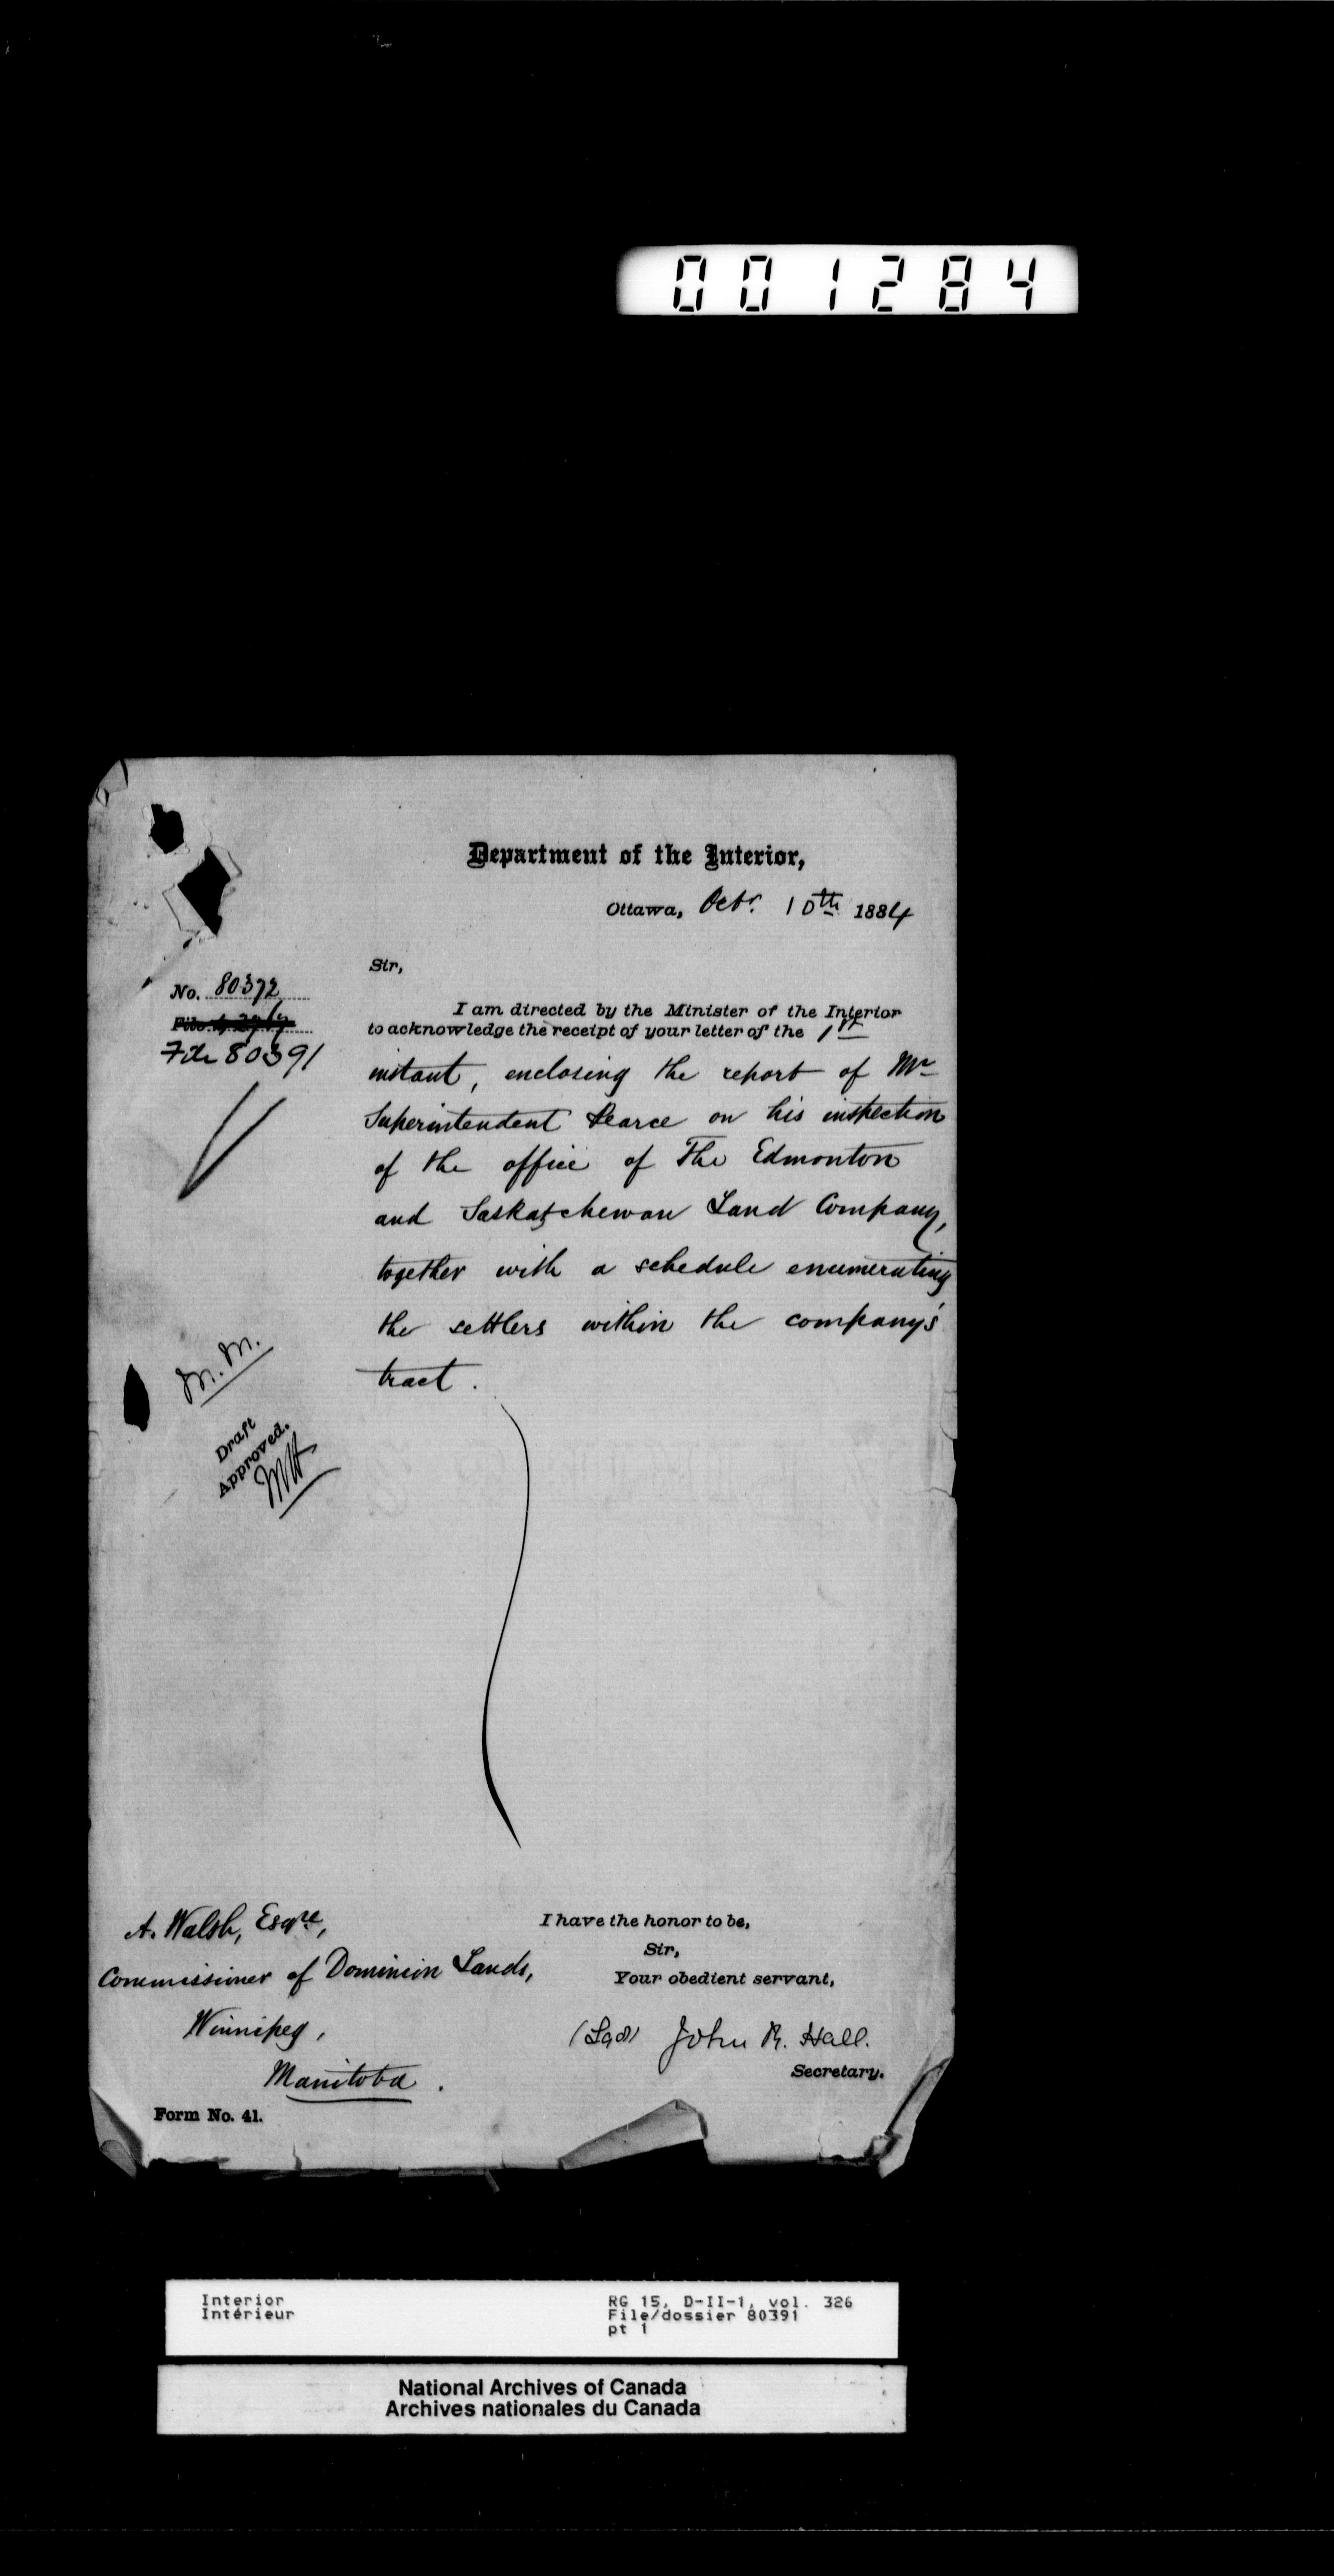 001284
Department of the Interior,
Ottawa, Octr. 10th 1884
Sir,
No. 80372
File 80391
I am directed by the Minister of the Interior
to acknowledge the receipt of your letter of the 1st
instant, enclosing the report of Mr
Superintendent Pearce on his inspection
of the office of The Edmonton
and Saskatchewan Land Company,
together with a schedule enumerating
the settlers within the company's
tract.
M. M.
Draft
Approved.
A. Walsh, Esqre,
Commissioner of Dominion Lands,
Winnipeg,
Manitoba.
Form No. 41.
I have the honor to be,
Sir,
Your obedient servant,
(Sgd) John R. Hall.
Secretary.
Interior
Intérieur
RG 15, D-II-1, vol. 326
File/dossier 80391
pt 1
National Archives of Canada
Archives nationales du Canada